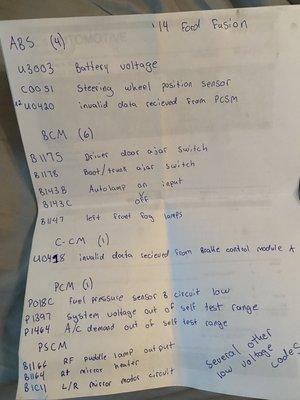 '14 Ford Fusion
ABS (4)
U3003 Battery voltage
C0051 Steering wheel position sensor
U0420 invalid data recieved from PCSM
BCM (6)
B1175 Driver door ajar switch
B1178 Boot/trunk ajar switch
B143B Autolamp on input
B143C off
B1147 left front fog lamps
C-CM (1)
U0418 invalid data recieved from Brake control module A
PCM (1)
P018C fuel pressure sensor B circuit low
P1397 system voltage out of self test range
P1464 A/C demand out of self test range
PSCM
B1166 RF puddle lamp output
B1164 Rt mirror heater
B1C11 L/R mirror motor circuit
several other
low voltage
codes